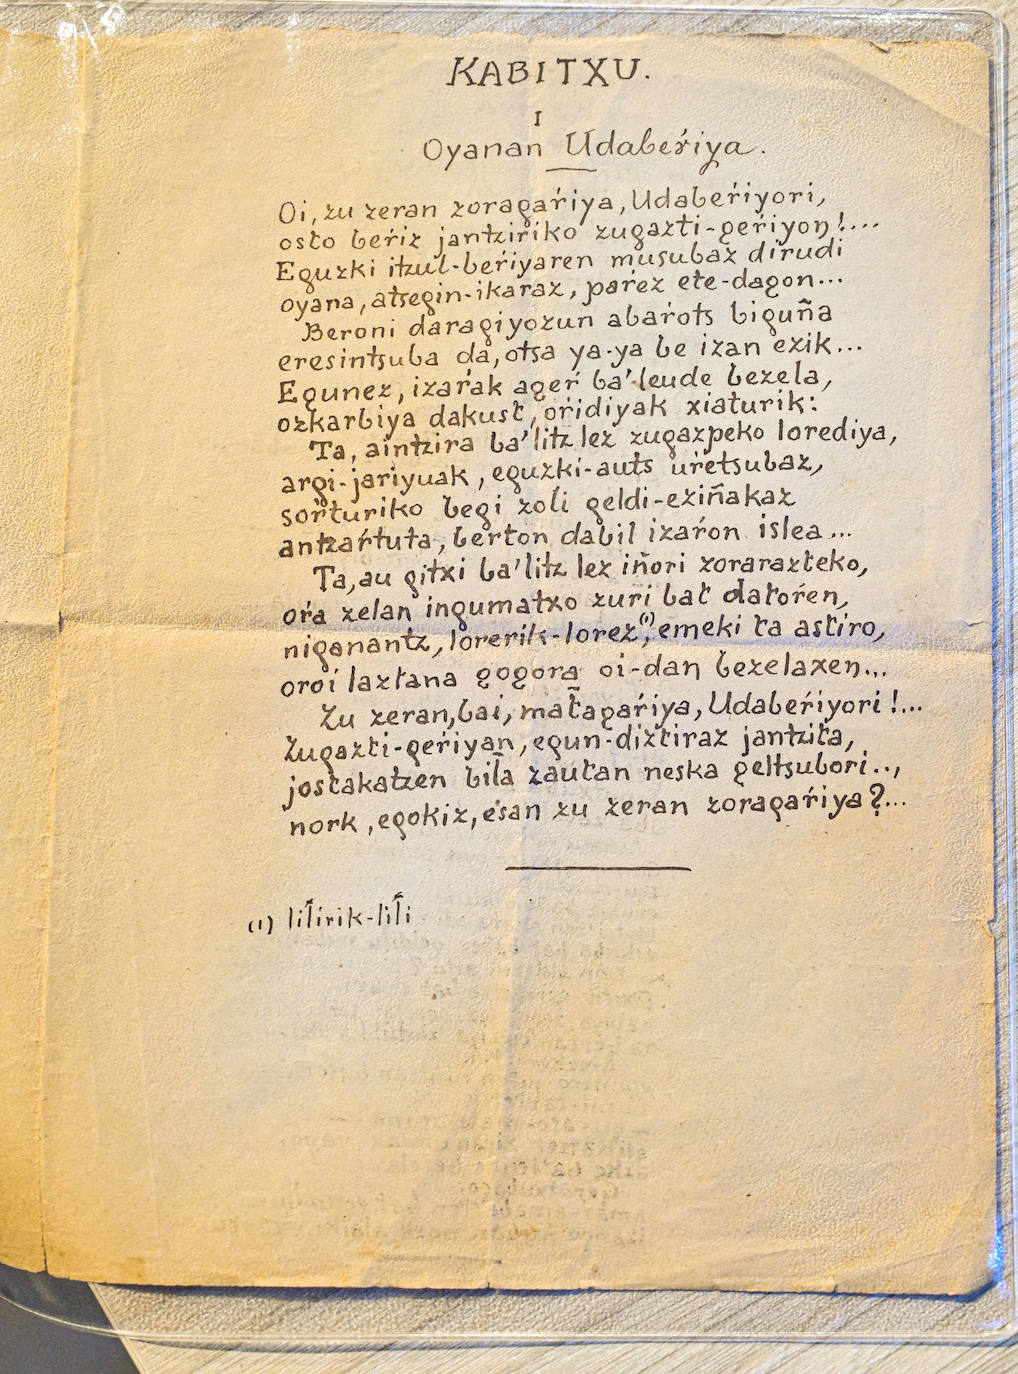 KABITXU.
I
Oyanan Udabeŕiya.
Oi, zu zeran zoragaŕiya, Udabeŕiyori,
osto beŕiz jantziriko zugazti-geŕiyon!...
Eguzki itzul-beŕiyaren musubaz dirudi
oyana, atsegin-ikaraz, paŕez ete-dagon...
Beroni daragiyozun abaŕots biguña
eresintsuba da, otsa ya-ya be izan ezik...
Egunez, izaŕak ageŕ ba'leude bezela,
ozkarbiya dakust, oŕidiyak xiaturik:
Ta, aintzira ba'litz lez zugazpeko lorediya,
argi-jaŕiyuak, eguzki-auts uŕetsubaz,
soŕturiko begi zoli geldi-eziñakaz
antzaŕtuta, berton dabil izaŕon islea...
Ta, au gitxi ba'litz lez iñori zorarazteko,
oŕa zelan ingumatxo zuri bat datoŕen,
niganantz, lorerik-lorez(1), emeki ta astiro,
oroi laztana gogora oi-dan bezelaxen...
Zu zeran, bai, mat̃agaŕiya, Udabeŕiyori!...
Zugazti-geŕiyan, egun-diztiraz jantzita,
jostakatzen bil̃a zautan neska geltsubori..,
nork, egokiz, esan zu zeran zoragaŕiya?...
(1) lil̃irik-lil̃i